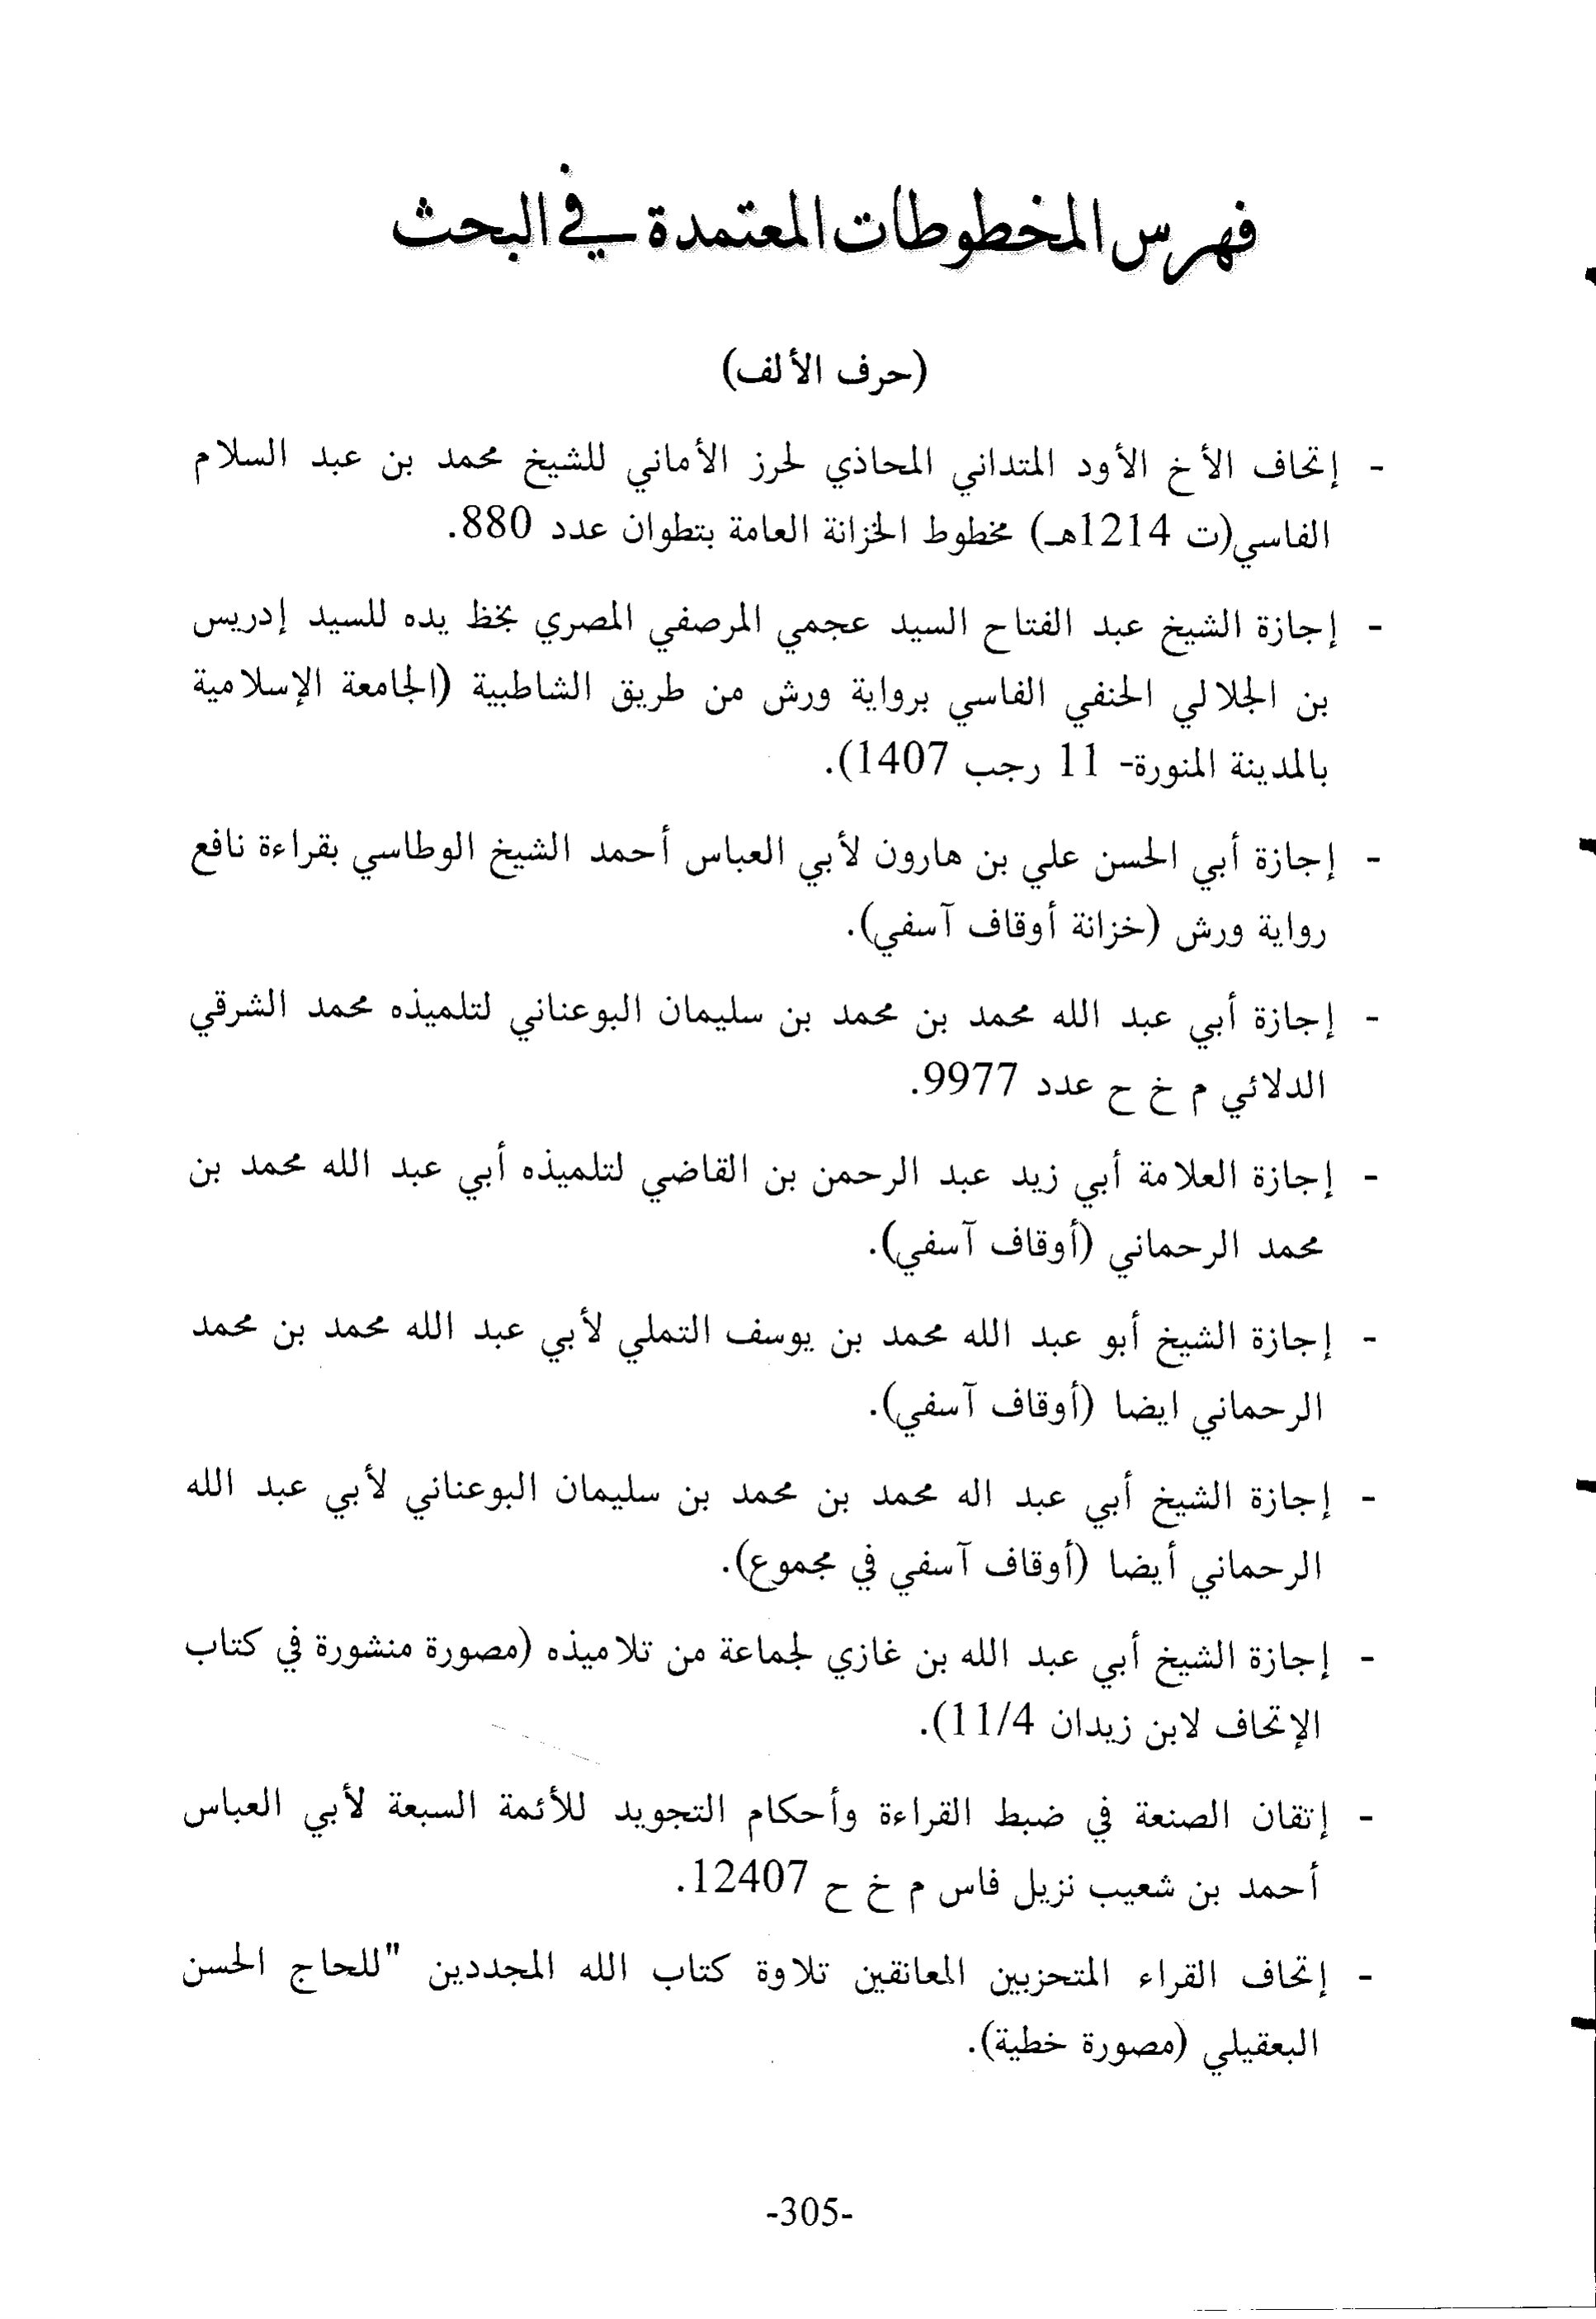 فهرس المخطوطات المعتمدة في البحث
(حرف الألف)
- إتحاف الأخ الأود المتداني المحاذي لحرز الأماني للشيخ محمد بن عبد السلام
الفاسي(ت 1214هـ) مخطوط الخزانة العامة بتطوان عدد 880.
- إجازة الشيخ عبد الفتاح السيد عجمي المرصفي المصري بخظ يده للسيد إدريس
بن الجلالي الحنفي الفاسي برواية ورش من طريق الشاطبية (الجامعة الإسلامية
بالمدينة المنورة- 11 رجب 1407).
- إجازة أبي الحسن علي بن هارون لأبي العباس أحمد الشيخ الوطاسي بقراءة نافع
رواية ورش (خزانة أوقاف آسفي).
- إجازة أبي عبد الله محمد بن محمد بن سليمان البوعناني لتلميذه محمد الشرقي
الدلائي م خ ح عدد 9977.
- إجازة العلامة أبي زيد عبد الرحمن بن القاضي لتلميذه أبي عبد الله محمد بن
محمد الرحماني (أوقاف آسفي).
- إجازة الشيخ أبو عبد الله محمد بن يوسف التملي لأبي عبد الله محمد بن محمد
الرحماني ايضا (أوقاف آسفي).
- إجازة الشيخ أبي عبد اله محمد بن محمد بن سليمان البوعناني لأبي عبد الله
الرحماني أيضا (أوقاف آسفي في مجموع).
- إجازة الشيخ أبي عبد الله بن غازي لجماعة من تلاميذه (مصورة منشورة في كتاب
الإتحاف لابن زيدان 11/4).
- إتقان الصنعة في ضبط القراءة وأحكام التجويد للأئمة السبعة لأبي العباس
أحمد بن شعيب نزيل فاس م خ ح 12407.
- إتحاف القراء المتحزبين المعانقين تلاوة كتاب الله المجددين "للحاج الحسن
البعقيلي (مصورة خطية).
-305-